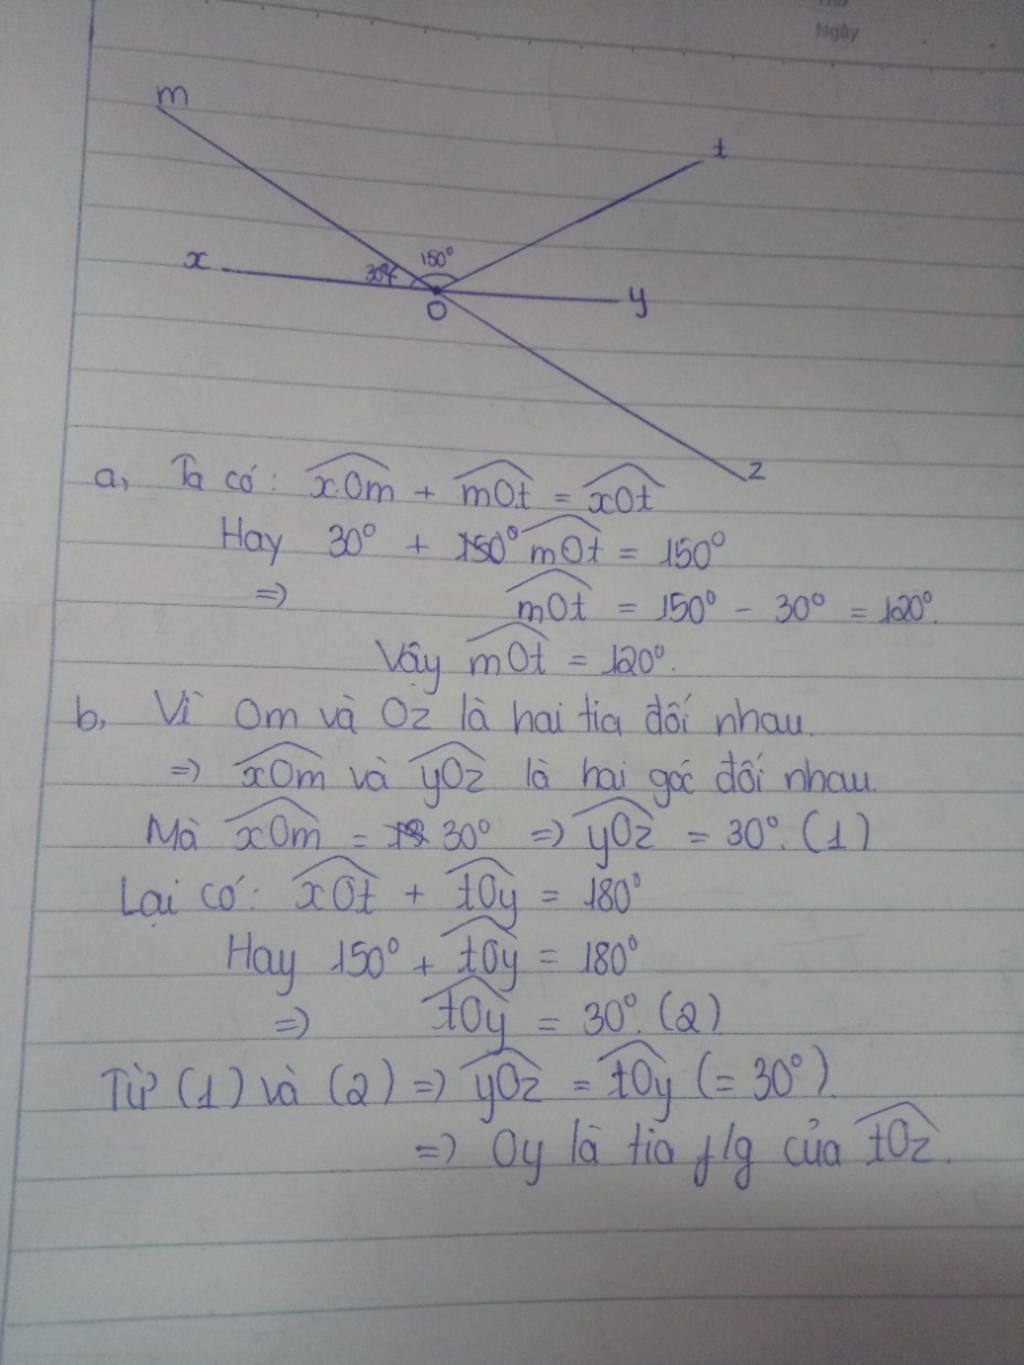 Thứ
Ngày
m
t
x
30°
150°
O
y
z
a, Ta có: xOm + mOt = xOt
Hay 30° + 150° mOt = 150°
=> mOt = 150° - 30° = 120°.
Vậy mOt = 120°.
b, Vì Om và Oz là hai tia đối nhau.
=> xOm và yOz là hai góc đối nhau.
Mà xOm = 30° => yOz = 30°. (1)
Lại có: xOt + tOy = 180°
Hay 150° + tOy = 180°
=> tOy = 30°. (2)
Từ (1) và (2) => yOz = tOy (= 30°).
=> Oy là tia f/g của tOz.